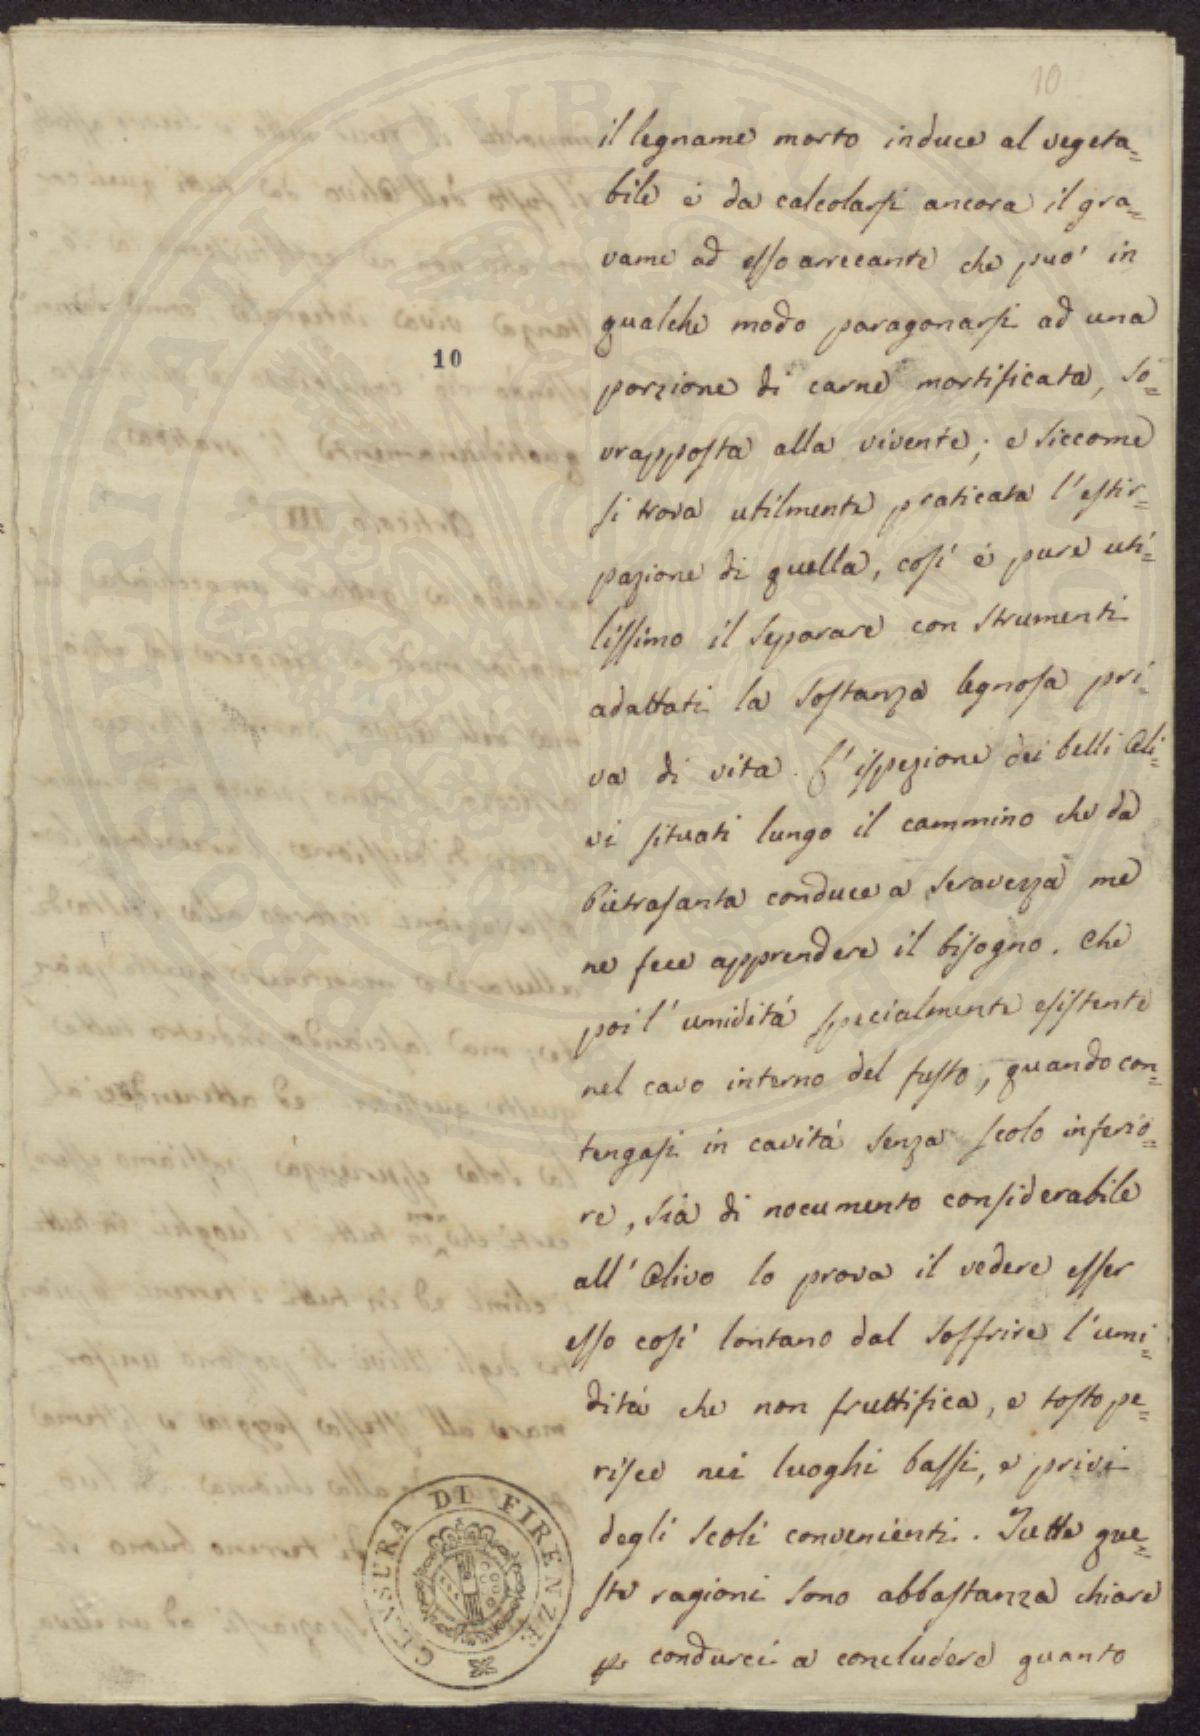 10
il legname morto induce al vegeta=
bile è da calcolarsi ancora il gra=
vame ad esso arrecante che può in
qualche modo paragonarsi ad una
10
porzione di carne mortificata, so=
vrapposta alla vivente; e siccome
si trova utilmente praticata l'estir=
pazione di quella, così è pure uti=
lissimo il separare con strumenti
adattati la sostanza legnosa pri=
va di vita. L'ispezione dei belli Oli=
vi situati lungo il cammino che da
Pietrasanta conduce a Seravezza me
ne fece apprendere il bisogno. Che
poi l'umidità specialmente esistente
nel cavo interno del fusto, quando con=
tengasi in cavità senza scolo inferio=
re, sia di nocumento considerabile
all'Olivo lo prova il vedere esser
esso così lontano dal soffrire l'umi=
dità che non fruttifica, e tosto pe=
risce nei luoghi bassi, e privi
degli scoli convenienti. Tutte que=
ste ragioni sono abbastanza chiare
p. condurci a concludere quanto
CENSURA DI FIRENZE